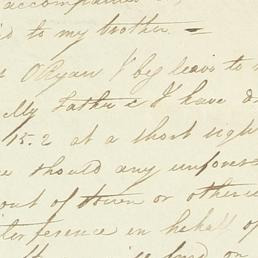 accompanied
to my brother. =
O'Ryan I beg leave to
My Father & I have
15.2 at a short sight
should any unfores
out of town or otherwi
terference in behalf of
or